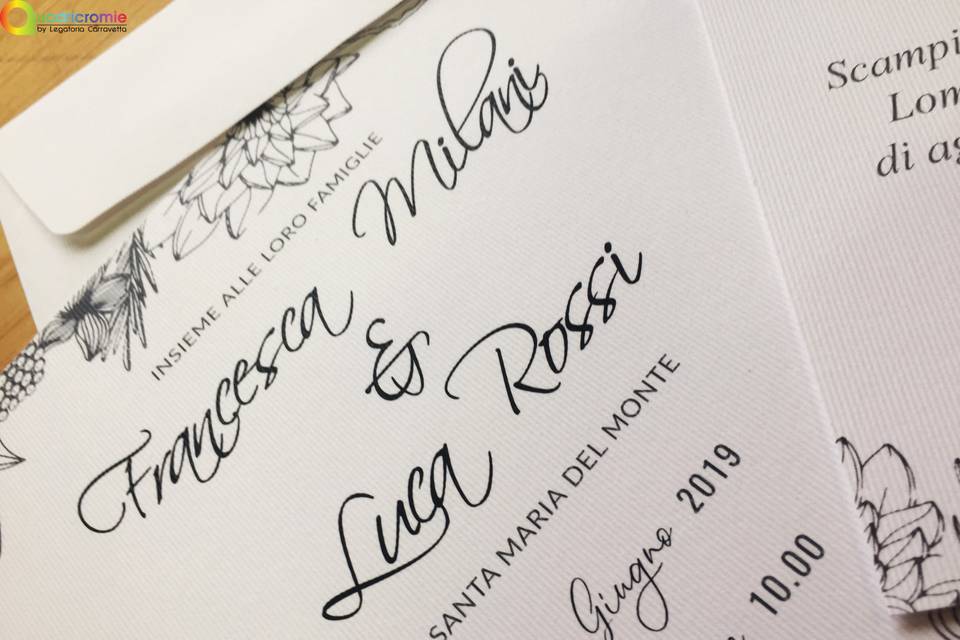 Quadricromie
by Legatoria Carravetta
INSIEME ALLE LORO FAMIGLIE
Francesca Milani
&
Luca Rossi
SANTA MARIA DEL MONTE
Giugno 2019
10.00
Scampi
di